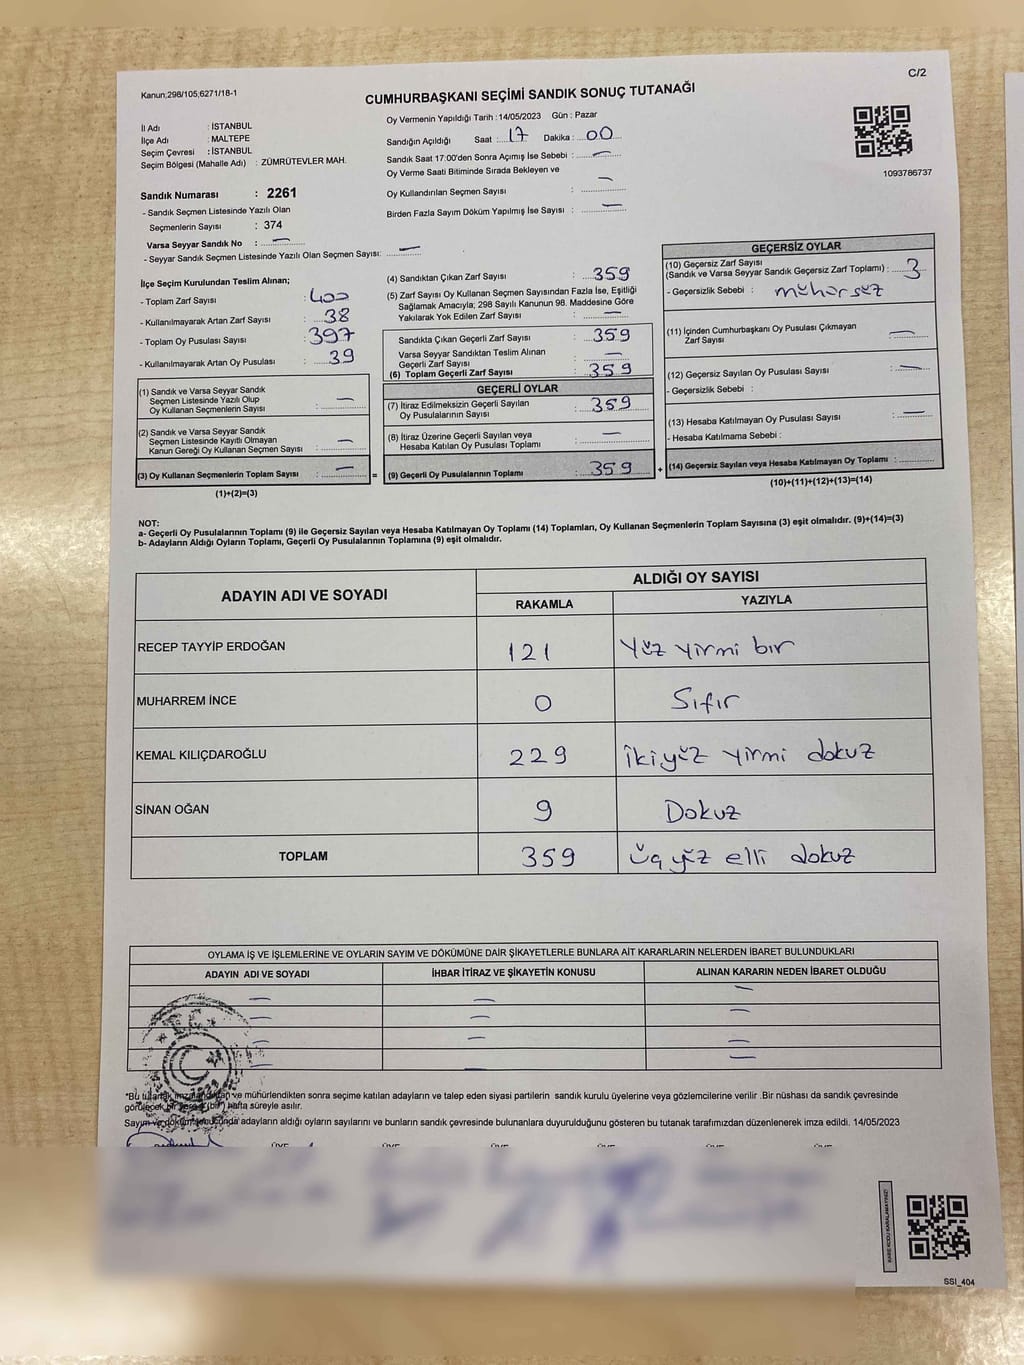 C/2
Kanun;298/105;6271/18-1
CUMHURBAŞKANI SEÇİMİ SANDIK SONUÇ TUTANAĞI
İl Adı : İSTANBUL
İlçe Adı : MALTEPE
Seçim Çevresi : İSTANBUL
Seçim Bölgesi (Mahalle Adı) : ZÜMRÜTEVLER MAH.
Sandık Numarası : 2261
- Sandık Seçmen Listesinde Yazılı Olan
Seçmenlerin Sayısı : 374
Varsa Seyyar Sandık No : —
- Seyyar Sandık Seçmen Listesinde Yazılı Olan Seçmen Sayısı: —
Oy Vermenin Yapıldığı Tarih : 14/05/2023 Gün : Pazar
Sandığın Açıldığı Saat : 17 Dakika : 00
Sandık Saat 17:00'den Sonra Açımış İse Sebebi : —
Oy Verme Saati Bitiminde Sırada Bekleyen ve
Oy Kullandırılan Seçmen Sayısı : —
Birden Fazla Sayım Döküm Yapılmış İse Sayısı : —
1093786737
İlçe Seçim Kurulundan Teslim Alınan;
- Toplam Zarf Sayısı : 400
- Kullanılmayarak Artan Zarf Sayısı : 38
- Toplam Oy Pusulası Sayısı : 397
- Kullanılmayarak Artan Oy Pusulası : 39
(1) Sandık ve Varsa Seyyar Sandık
Seçmen Listesinde Yazılı Olup
Oy Kullanan Seçmenlerin Sayısı : —
(2) Sandık ve Varsa Seyyar Sandık
Seçmen Listesinde Kayıtlı Olmayan
Kanun Gereği Oy Kullanan Seçmen Sayısı : —
(3) Oy Kullanan Seçmenlerin Toplam Sayısı : — =
(1)+(2)=(3)
(4) Sandıktan Çıkan Zarf Sayısı : 359
(5) Zarf Sayısı Oy Kullanan Seçmen Sayısından Fazla İse, Eşitliği
Sağlamak Amacıyla; 298 Sayılı Kanunun 98. Maddesine Göre
Yakılarak Yok Edilen Zarf Sayısı : —
Sandıkta Çıkan Geçerli Zarf Sayısı : 359
Varsa Seyyar Sandıktan Teslim Alınan
Geçerli Zarf Sayısı : —
(6) Toplam Geçerli Zarf Sayısı : 359
GEÇERLİ OYLAR
(7) İtiraz Edilmeksizin Geçerli Sayılan
Oy Pusulalarının Sayısı : 359
(8) İtiraz Üzerine Geçerli Sayılan veya
Hesaba Katılan Oy Pusulası Toplamı : —
(9) Geçerli Oy Pusulalarının Toplamı : 359 +
GEÇERSİZ OYLAR
(10) Geçersiz Zarf Sayısı
(Sandık ve Varsa Seyyar Sandık Geçersiz Zarf Toplamı) : 3
- Geçersizlik Sebebi : mühürsüz
(11) İçinden Cumhurbaşkanı Oy Pusulası Çıkmayan
Zarf Sayısı : —
(12) Geçersiz Sayılan Oy Pusulası Sayısı : —
- Geçersizlik Sebebi :
(13) Hesaba Katılmayan Oy Pusulası Sayısı : —
- Hesaba Katılmama Sebebi :
(14) Geçersiz Sayılan veya Hesaba Katılmayan Oy Toplamı :
(10)+(11)+(12)+(13)=(14)
NOT:
a- Geçerli Oy Pusulalarının Toplamı (9) ile Geçersiz Sayılan veya Hesaba Katılmayan Oy Toplamı (14) Toplamları, Oy Kullanan Seçmenlerin Toplam Sayısına (3) eşit olmalıdır. (9)+(14)=(3)
b- Adayların Aldığı Oyların Toplamı, Geçerli Oy Pusulalarının Toplamına (9) eşit olmalıdır.
ADAYIN ADI VE SOYADI ALDIĞI OY SAYISI
RAKAMLA YAZIYLA
RECEP TAYYİP ERDOĞAN 121 Yüz yirmi bir
MUHARREM İNCE 0 Sıfır
KEMAL KILIÇDAROĞLU 229 İkiyüz yirmi dokuz
SİNAN OĞAN 9 Dokuz
TOPLAM 359 üç yüz elli dokuz
OYLAMA İŞ VE İŞLEMLERİNE VE OYLARIN SAYIM VE DÖKÜMÜNE DAİR ŞİKAYETLERLE BUNLARA AİT KARARLARIN NELERDEN İBARET BULUNDUKLARI
ADAYIN ADI VE SOYADI İHBAR İTİRAZ VE ŞİKAYETİN KONUSU ALINAN KARARIN NEDEN İBARET OLDUĞU
— — —
— — —
— — —
— — —
*Bu tutanak ve mühürlendikten sonra seçime katılan adayların ve talep eden siyasi partilerin sandık kurulu üyelerine veya gözlemcilerine verilir .Bir nüshası da sandık çevresinde
görülecek bir (bir) hafta süreyle asılır.
Sayım ve döküm adayların aldığı oyların sayılarını ve bunların sandık çevresinde bulunanlara duyurulduğunu gösteren bu tutanak tarafımızdan düzenlenerek imza edildi. 14/05/2023
KARE KODU KARALAMAYINIZ!
SSI_404